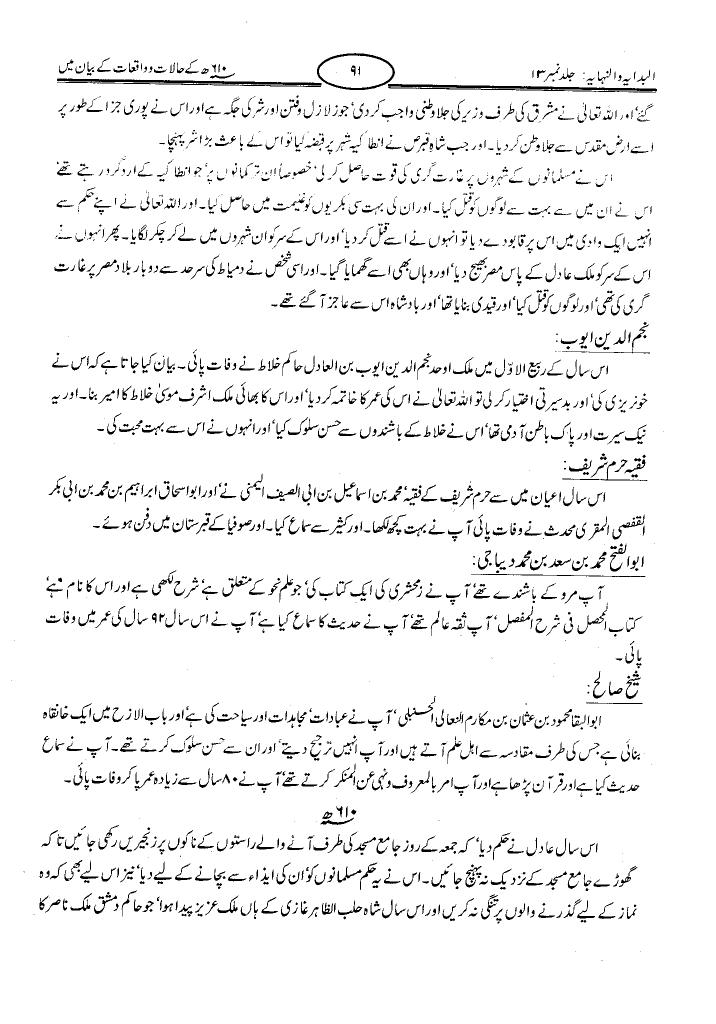 البدایہ والنہایہ: جلد نمبر ۱۳
۹۱
۶۱۰ھ کے حالات و واقعات کے بیان میں
گئے' اور اللہ تعالیٰ نے مشرق کی طرف وزیر کی جلاوطنی واجب کر دی' جو زلازل و فتن اور شر کی جگہ ہے اور اس نے پوری جزا کے طور پر
اسے ارض مقدس سے جلاوطن کر دیا۔ اور جب شاہ قبرص نے انطاکیہ شہر پر قبضہ کیا تو اس کے باعث بڑا شر پہنچا۔
اس نے مسلمانوں کے شہروں پر غارت گری کی قوت حاصل کر لی' خصوصاً ان ترکمانوں پر' جو انطاکیہ کے اردگرد رہتے تھے'
اس نے ان میں سے بہت سے لوگوں کو قتل کیا۔ اور ان کی بہت سی بکریوں کو غنیمت میں حاصل کیا۔ اور اللہ تعالیٰ نے اپنے حکم سے
انہیں ایک وادی میں اس پر قابو دے دیا تو انہوں نے اسے قتل کر دیا' اور اس کے سر کو ان شہروں میں لے کر چکر لگایا۔ پھر انہوں نے
اس کے سر کو ملک عادل کے پاس مصر بھیج دیا' اور وہاں بھی اسے گھمایا گیا۔ اور اسی شخص نے دمیاط کی سرحد سے دو بار بلاد مصر پر غارت
گری کی تھی' اور لوگوں کو قتل کیا' اور قیدی بنایا تھا' اور بادشاہ اس سے عاجز آ گئے تھے۔
نجم الدین ایوب:
اس سال کے ربیع الاوّل میں ملک اوحد نجم الدین ایوب بن العادل حاکم خلاط نے وفات پائی۔ بیان کیا جاتا ہے کہ اس نے
خونریزی کی' اور بدسیرتی اختیار کر لی تو اللہ تعالیٰ نے اس کی عمر کا خاتمہ کر دیا' اور اس کا بھائی ملک اشرف موسیٰ خلاط کا امیر بنا۔ اور یہ
نیک سیرت اور پاک باطن آدمی تھا' اس نے خلاط کے باشندوں سے حسن سلوک کیا' اور انہوں نے اس سے بہت محبت کی۔
فقیہ حرم شریف:
اس سال اعیان میں سے حرم شریف کے فقیہ' محمد بن اسماعیل بن ابی الصیف الیمنی نے' اور ابو اسحاق ابراہیم بن محمد بن ابی بکر
القفصی المقری محدث نے وفات پائی آپ نے بہت کچھ لکھا۔ اور کثیر سے سماع کیا۔ اور صوفیا کے قبرستان میں دفن ہوئے۔
ابوالفتح محمد بن سعد بن محمد دیباجی:
آپ مرو کے باشندے تھے' آپ نے زمخشری کی ایک کتاب کی' جو علم نحو کے متعلق ہے' شرح لکھی ہے اور اس کا نام ہے'
کتاب المحصل فی شرح المفصل' آپ ثقہ عالم تھے' آپ نے حدیث کا سماع کیا ہے' آپ نے اس سال ۹۲ سال کی عمر میں وفات
پائی۔
شیخ صالح:
ابوالبقا محمود بن عثمان بن مکارم النعالی الحنبلی' آپ نے عبادات' مجاہدات اور سیاحت کی ہے' اور باب الازج میں ایک خانقاہ
بنائی ہے جس کی طرف مقادسہ سے اہل علم آتے ہیں اور آپ انہیں ترجیح دیتے' اور ان سے حسن سلوک کرتے تھے۔ آپ نے سماع
حدیث کیا ہے اور قرآن پڑھا ہے اور آپ امر بالمعروف و نہی عن المنکر کرتے تھے' آپ نے ۸۰ سال سے زیادہ عمر پا کر وفات پائی۔
۶۱۰ھ
اس سال عادل نے حکم دیا' کہ جمعہ کے روز جامع مسجد کی طرف آنے والے راستوں کے ناکوں پر زنجیریں رکھی جائیں تاکہ
گھوڑے جامع مسجد کے نزدیک نہ پہنچ جائیں۔ اس نے یہ حکم مسلمانوں کو' ان کی ایذاء سے بچانے کے لیے دیا' نیز اس لیے بھی کہ وہ
نماز کے لیے گذرنے والوں پر تنگی نہ کریں اور اس سال شاہ حلب الظاہر غازی کے ہاں ملک عزیز پیدا ہوا' جو حاکم دمشق ملک ناصر کا